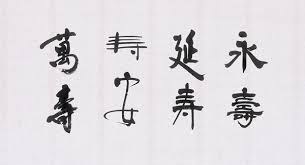 永壽
延寿
寿安
萬寿